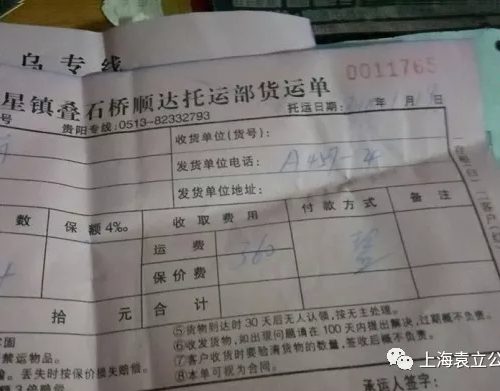 乌专线
星镇叠石桥顺达托运部货运单
0011765
号
贵阳专线:0513-82332793
托运日期: 年 月 日
收货单位(货号):
发货单位电话: A457-4
发货单位地址:
数 保额4‰ 收取费用 付款方式 备注
运费 360
保价费
拾 元 合计
⑤货物到达时30天后无人认领,按无主处理。
⑥收发货物,如出现问题请在100天内提出解决,过期概不负责。
⑦客户收货时要验清货物的数量,签收后概不负责。
⑧本单可视为合同。
禁运物品。
丢失时按保价损失赔偿。
3倍赔偿。
承运人签字:
上海袁立公